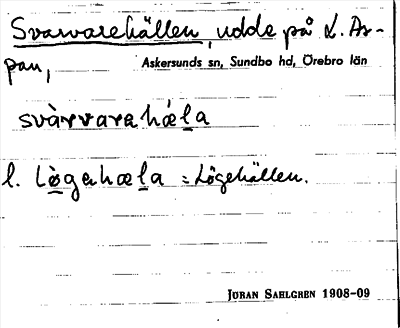 Svarvarehällen, udde på L. As-
pan,
Askersunds sn, Sundbo hd, Örebro län
svàrvarahæ̀la
l. Lø̀gahæla = Lögehällen.
JÖRAN SAHLGREN 1908-09